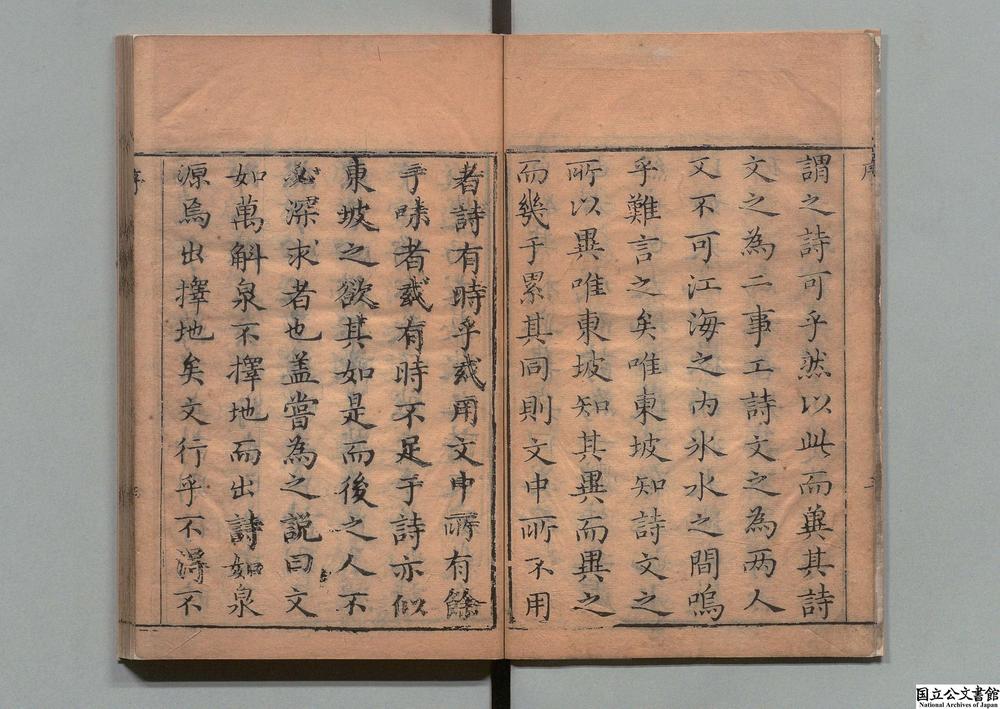 謂之詩可乎然以此而異其詩
文之為二事工詩文之為兩人
又不可江海之內氷水之間嗚
乎難言之矣唯東坡知詩文之
所以異唯東坡知其異而異之
而幾于累其同則文中所不用
者詩有時乎或用文中所有餘
乎味者或有時不足于詩亦似
東坡之欲其如是而後之人不
必深求者也盖嘗為之説曰文
如萬斛泉不擇地而出詩如泉
源焉出擇地矣文行乎不得不
序
国立公文書館
National Archives of Japan